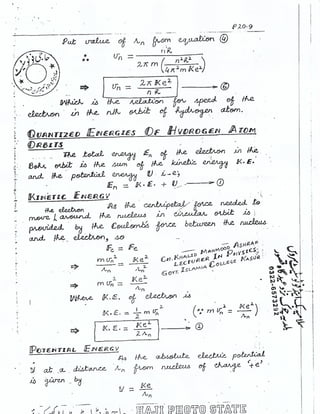 P20-9
Put value of rn from equation ④
∴ υn = nℏ / 2πm (n²ℏ² / 4π²mKe²)
⇒ υn = 2πKe² / nℏ —⑥
Which is the relation for speed of the
electron in the nth orbit of hydrogen atom.
QUANTIZED ENERGIES OF HYDROGEN ATOM
ORBITS
The total energy En of the electron in the
Bohr orbit is the sum of the kinetic energy K.E.
and the potential energy U i.e;
En = K.E. + U —①
KINETIC ENERGY
As the centripetal force needed to
the electron
move ( around the nucleus in circular orbit is
provided by the Coulomb's force between the nucleus
and the electron, so
Fc = Fe
mυn² / rn = Ke² / rn²
⇒ mυn² = Ke² / rn
CH. KHALID MAHMOOD ASHRAF
LECTURER IN PHYSICS,
GOVT. ISLAMIA COLLEGE KASUR
0322-6573293
Where K.E. of electron is
K.E. = 1/2 mυn² (∵ mυn² = Ke² / rn)
⇒ K.E. = Ke² / 2rn —②
POTENTIAL ENERGY
As the absolute electric potential
V at a distance rn from nucleus of charge '+e'
is given by
V = Ke / rn
HAJI PHOTO STATE